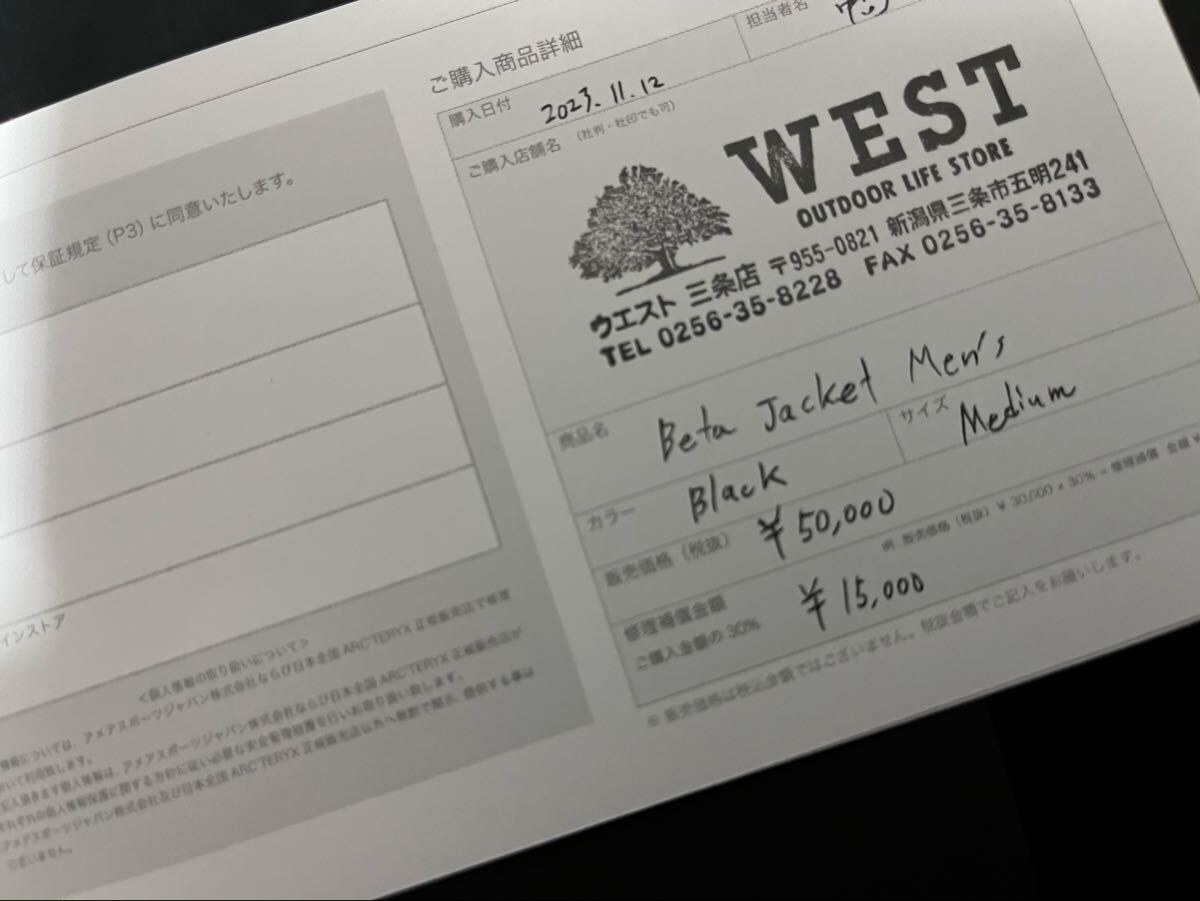 ご購入商品詳細
購入日付 2023.11.12
担当者名
ご購入店舗名 (社判・社印でも可)
WEST
OUTDOOR LIFE STORE
ウエスト 三条店 〒955-0821 新潟県三条市五明241
TEL 0256-35-8228 FAX 0256-35-8133
商品名 Beta Jacket Men's
カラー Black
サイズ Medium
販売価格（税抜） ¥50,000
例：販売価格（税抜）¥30,000×30%=修理補償 金額¥
修理補償金額
ご購入金額の30%
¥15,000
※販売価格は税込金額ではございません。税抜金額でご記入をお願いします。
して保証規定(P3)に同意いたします。
インストア
<個人情報の取り扱いについて>
情報については、アメアスポーツジャパン株式会社ならび日本全国ARC'TERYX正規販売店で管理
おいて利用致します。
記入頂きます個人情報は、アメアスポーツジャパン株式会社ならび日本全国ARC'TERYX正規販売店が
それぞれの個人情報保護に関する方針に従い必要な安全管理措置を行いお取り扱い致します。
アメアスポーツジャパン株式会社及び日本全国ARC'TERYX正規販売店以外へ無断で開示、提供する事は
ございません。